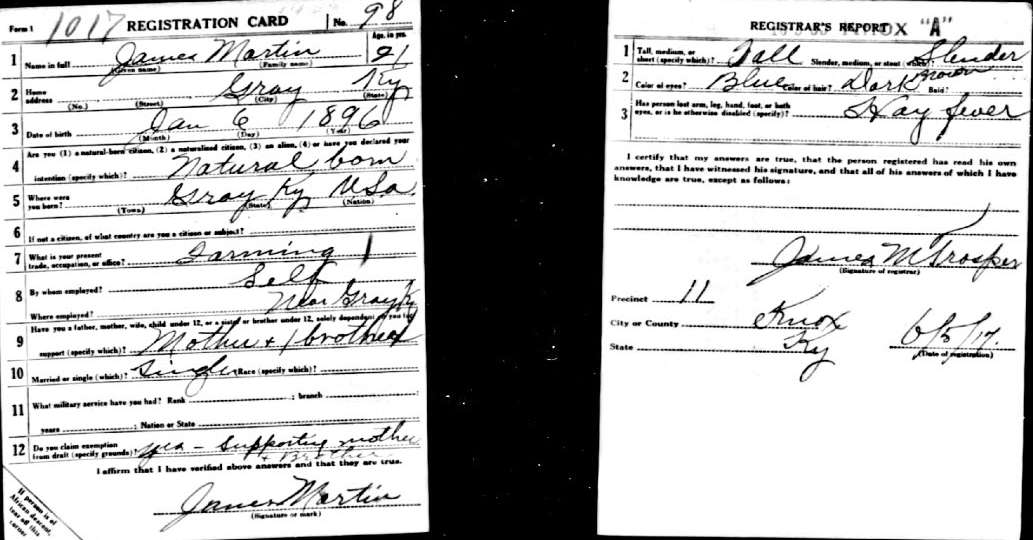 Form 1 1017 REGISTRATION CARD No. 98
1 Name in full James Martin Age, in yrs. 21
(Given name) (Family name)
2 Home address Gray Ky
(No.) (Street) (City) (State)
3 Date of birth Jan 6 1896
(Month) (Day) (Year)
4 Are you (1) a natural-born citizen, (2) a naturalized citizen, (3) an alien, (4) or have you declared your
intention (specify which)? Natural born
5 Where were you born? Gray Ky USA
(Town) (State) (Nation)
6 If not a citizen, of what country are you a citizen or subject?
7 What is your present trade, occupation, or office? Farming
8 By whom employed? Self
Where employed? Near Gray Ky
9 Have you a father, mother, wife, child under 12, or a sister or brother under 12, solely dependent on you for
support (specify which)? Mother + 1 brother
10 Married or single (which)? Single Race (specify which)?
11 What military service have you had? Rank ; branch
years ; Nation or State
12 Do you claim exemption from draft (specify grounds)? yes – supporting mother
+ Brother
I affirm that I have verified above answers and that they are true.
James Martin
(Signature or mark)
If person is of
African descent,
tear off this
corner
REGISTRAR'S REPORT OX "A"
1 Tall, medium, or short (specify which)? Tall Slender, medium, or stout (which)? Slender
2 Color of eyes? Blue Color of hair? Dark Brown Bald?
3 Has person lost arm, leg, hand, foot, or both
eyes, or is he otherwise disabled (specify)? Hay fever
I certify that my answers are true, that the person registered has read his own
answers, that I have witnessed his signature, and that all of his answers of which I have
knowledge are true, except as follows:
James M Trosper
(Signature of registrar)
Precinct 11
City or County Knox
State Ky 6/5/17.
(Date of registration)